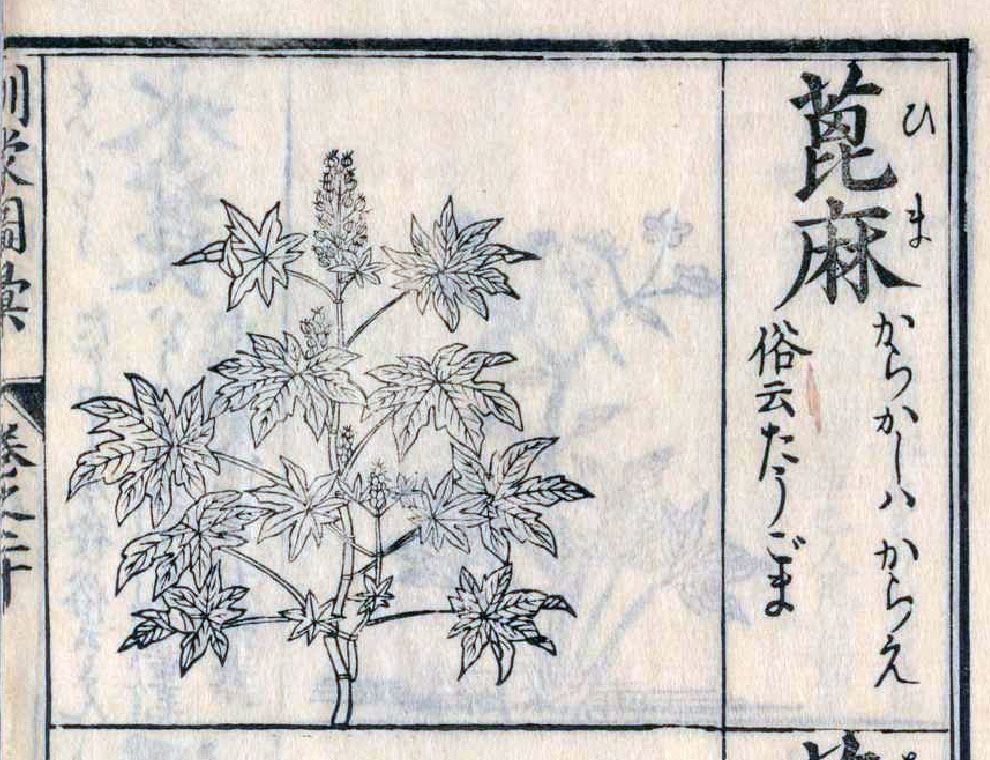 蓖麻
ひま
からかしハ からえ
俗云たうごま
訓蒙圖彙
卷之二十